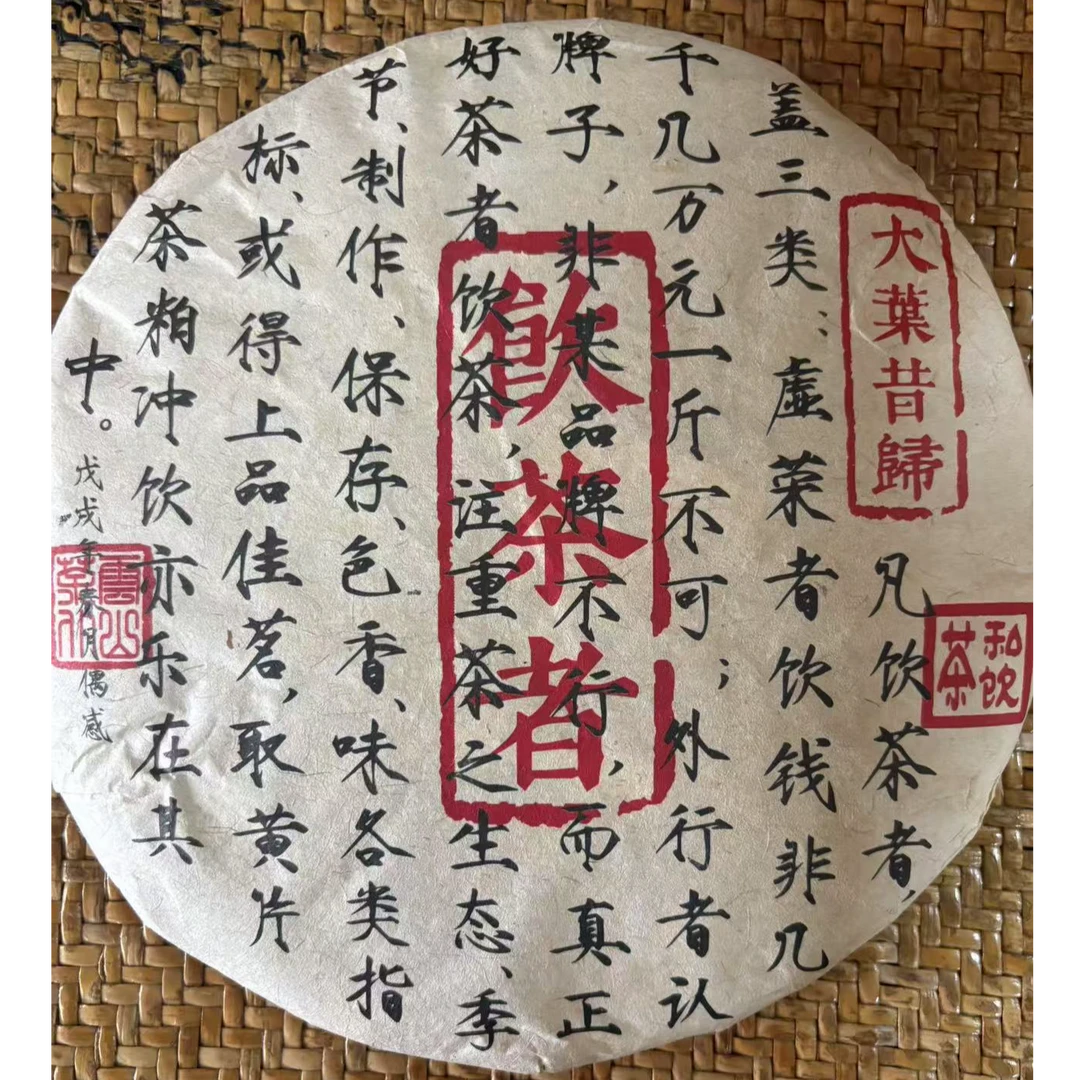 大葉昔歸
和飲茶
凡饮茶者，
盖三类：虚荣者饮钱非几
千几万元一斤不可；外行者认
牌子，非某品牌不行，而真正
好茶者饮茶，注重茶之生态、季
节、制作、保存、色香、味各类指
标、或得上品佳茗，取黄片
茶粕冲饮亦乐在其
中。
戊戌年春月偶感
飲茶者
雲山茶人